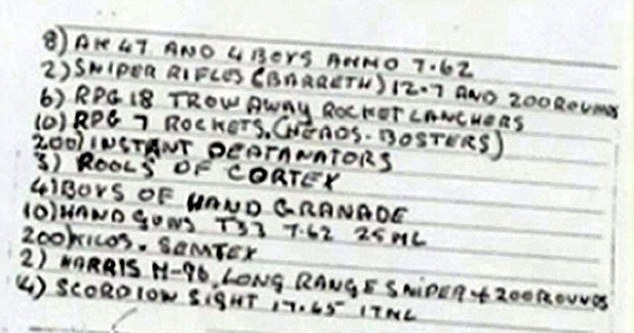 8) AK 47 AND 4 BOYS AMMO 7.62
2) SNIPER RIFLES (BARRETH) 12.7 AND 200 ROUNDS
6) RPG 18 TROW AWAY ROCKET LANCHERS
10) RPG 7 ROCKETS. (HEADS-BOSTERS)
200) INSTANT DEATANATORS
5) ROOLS OF CORTEX
4) BOYS OF HAND GRANADE
10) HAND GUNS T33 7.62 25 ML
200) KILOS. SEMTEX
2) HARRIS M-96. LONG RANGE SNIPER + 200 ROUNDS
4) SCORDION SIGHT 17.65 17ML